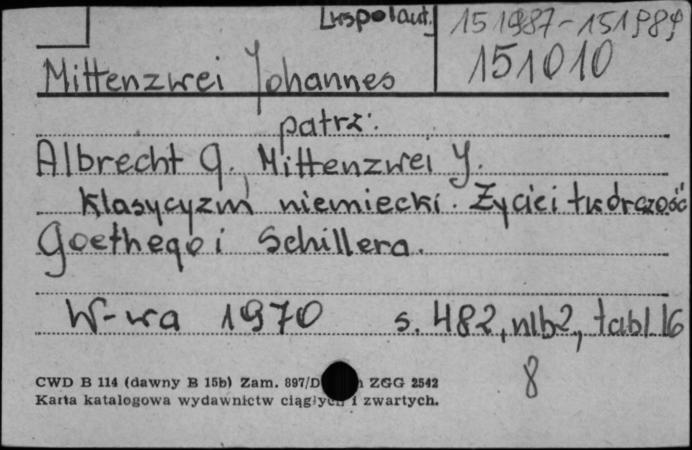 [współaut.] 151987-151989
151010
Mittenzwei Johannes
patrz:
Albrecht G., Mittenzwei J.
Klasycyzm niemiecki. Życie i twórczość
Goethego i Schillera.
W-wa 1970 s. 482, nlb2, tabl 16
8
CWD B 114 (dawny B 15b) Zam. 897/D ZGG 2542
Karta katalogowa wydawnictw ciągłych i zwartych.